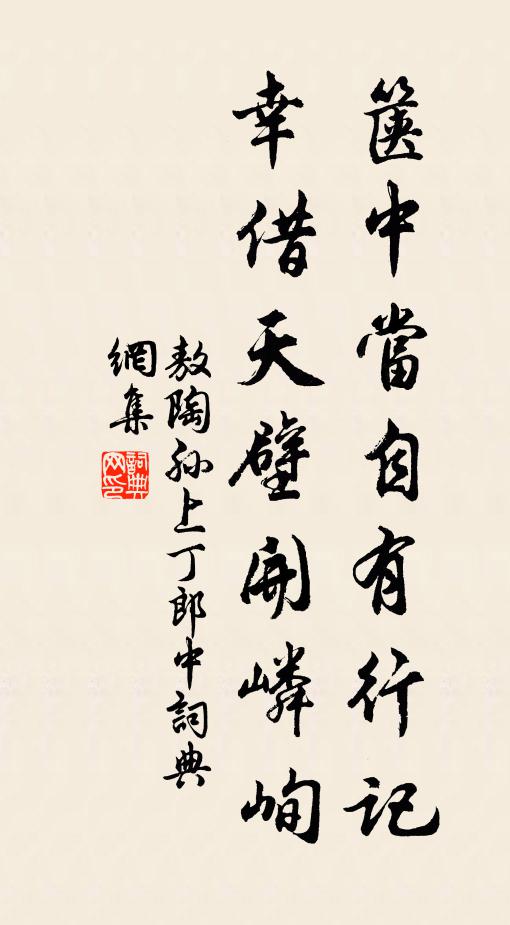 篋中當自有行記
幸借天壁開嶙峋
敖陶孫上丁郎中詞典
網集
詞典网印